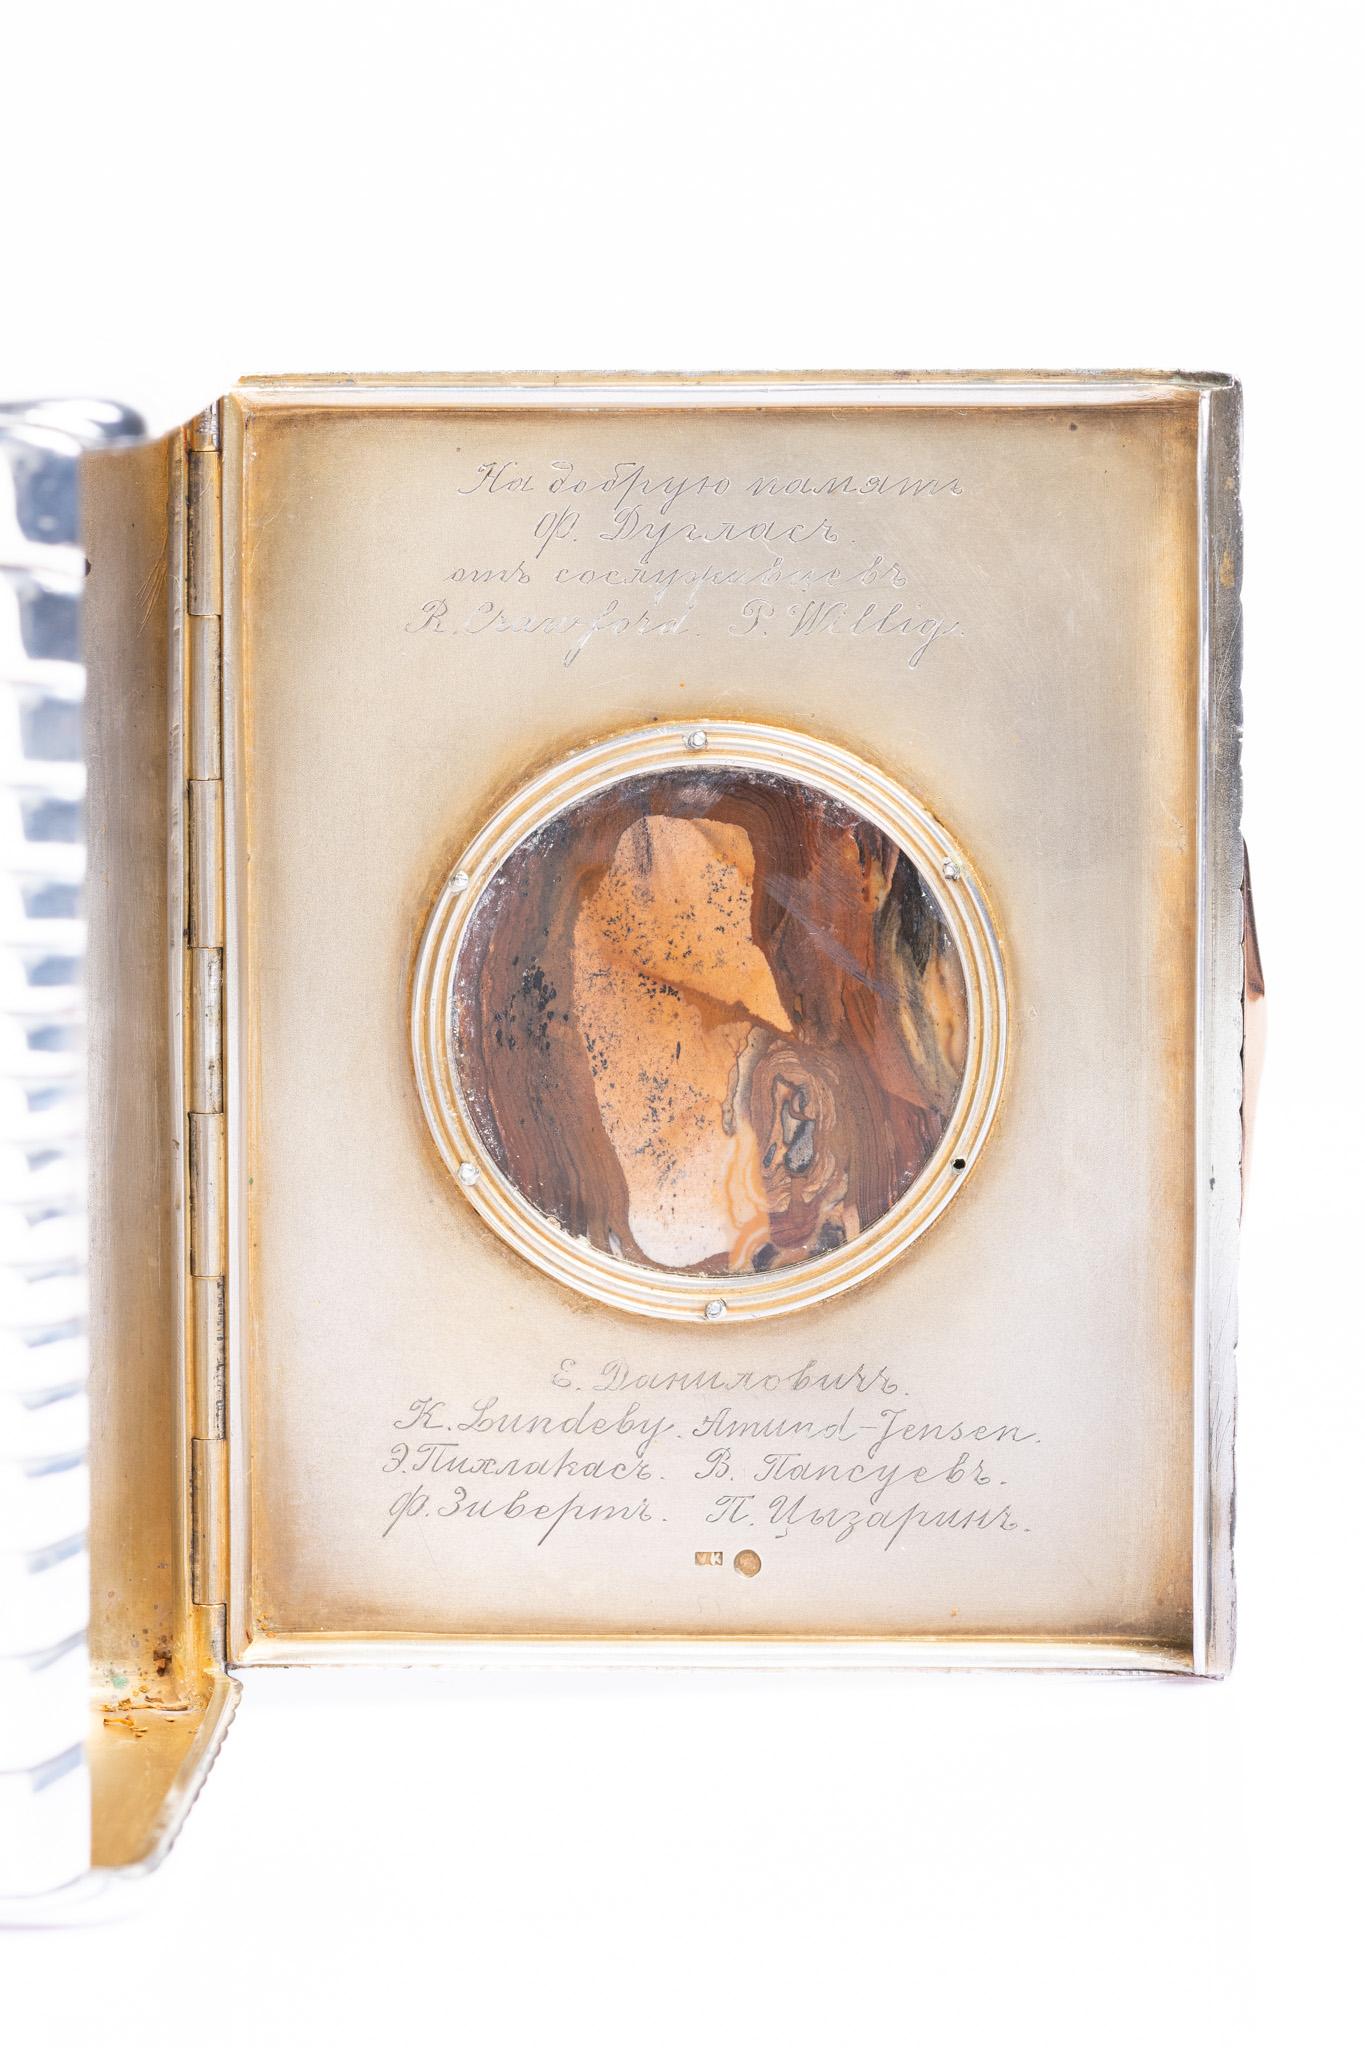 На добрую память
Ф. Дугласъ.
отъ сослуживцевъ
R. Crawford. P. Willig.
Е. Даниловичъ.
K. Lundeby. Amund-Jensen.
Э. Пихлакасъ. В. Папсуевъ.
Ф. Зивертъ. П. Цызаринъ.
VK